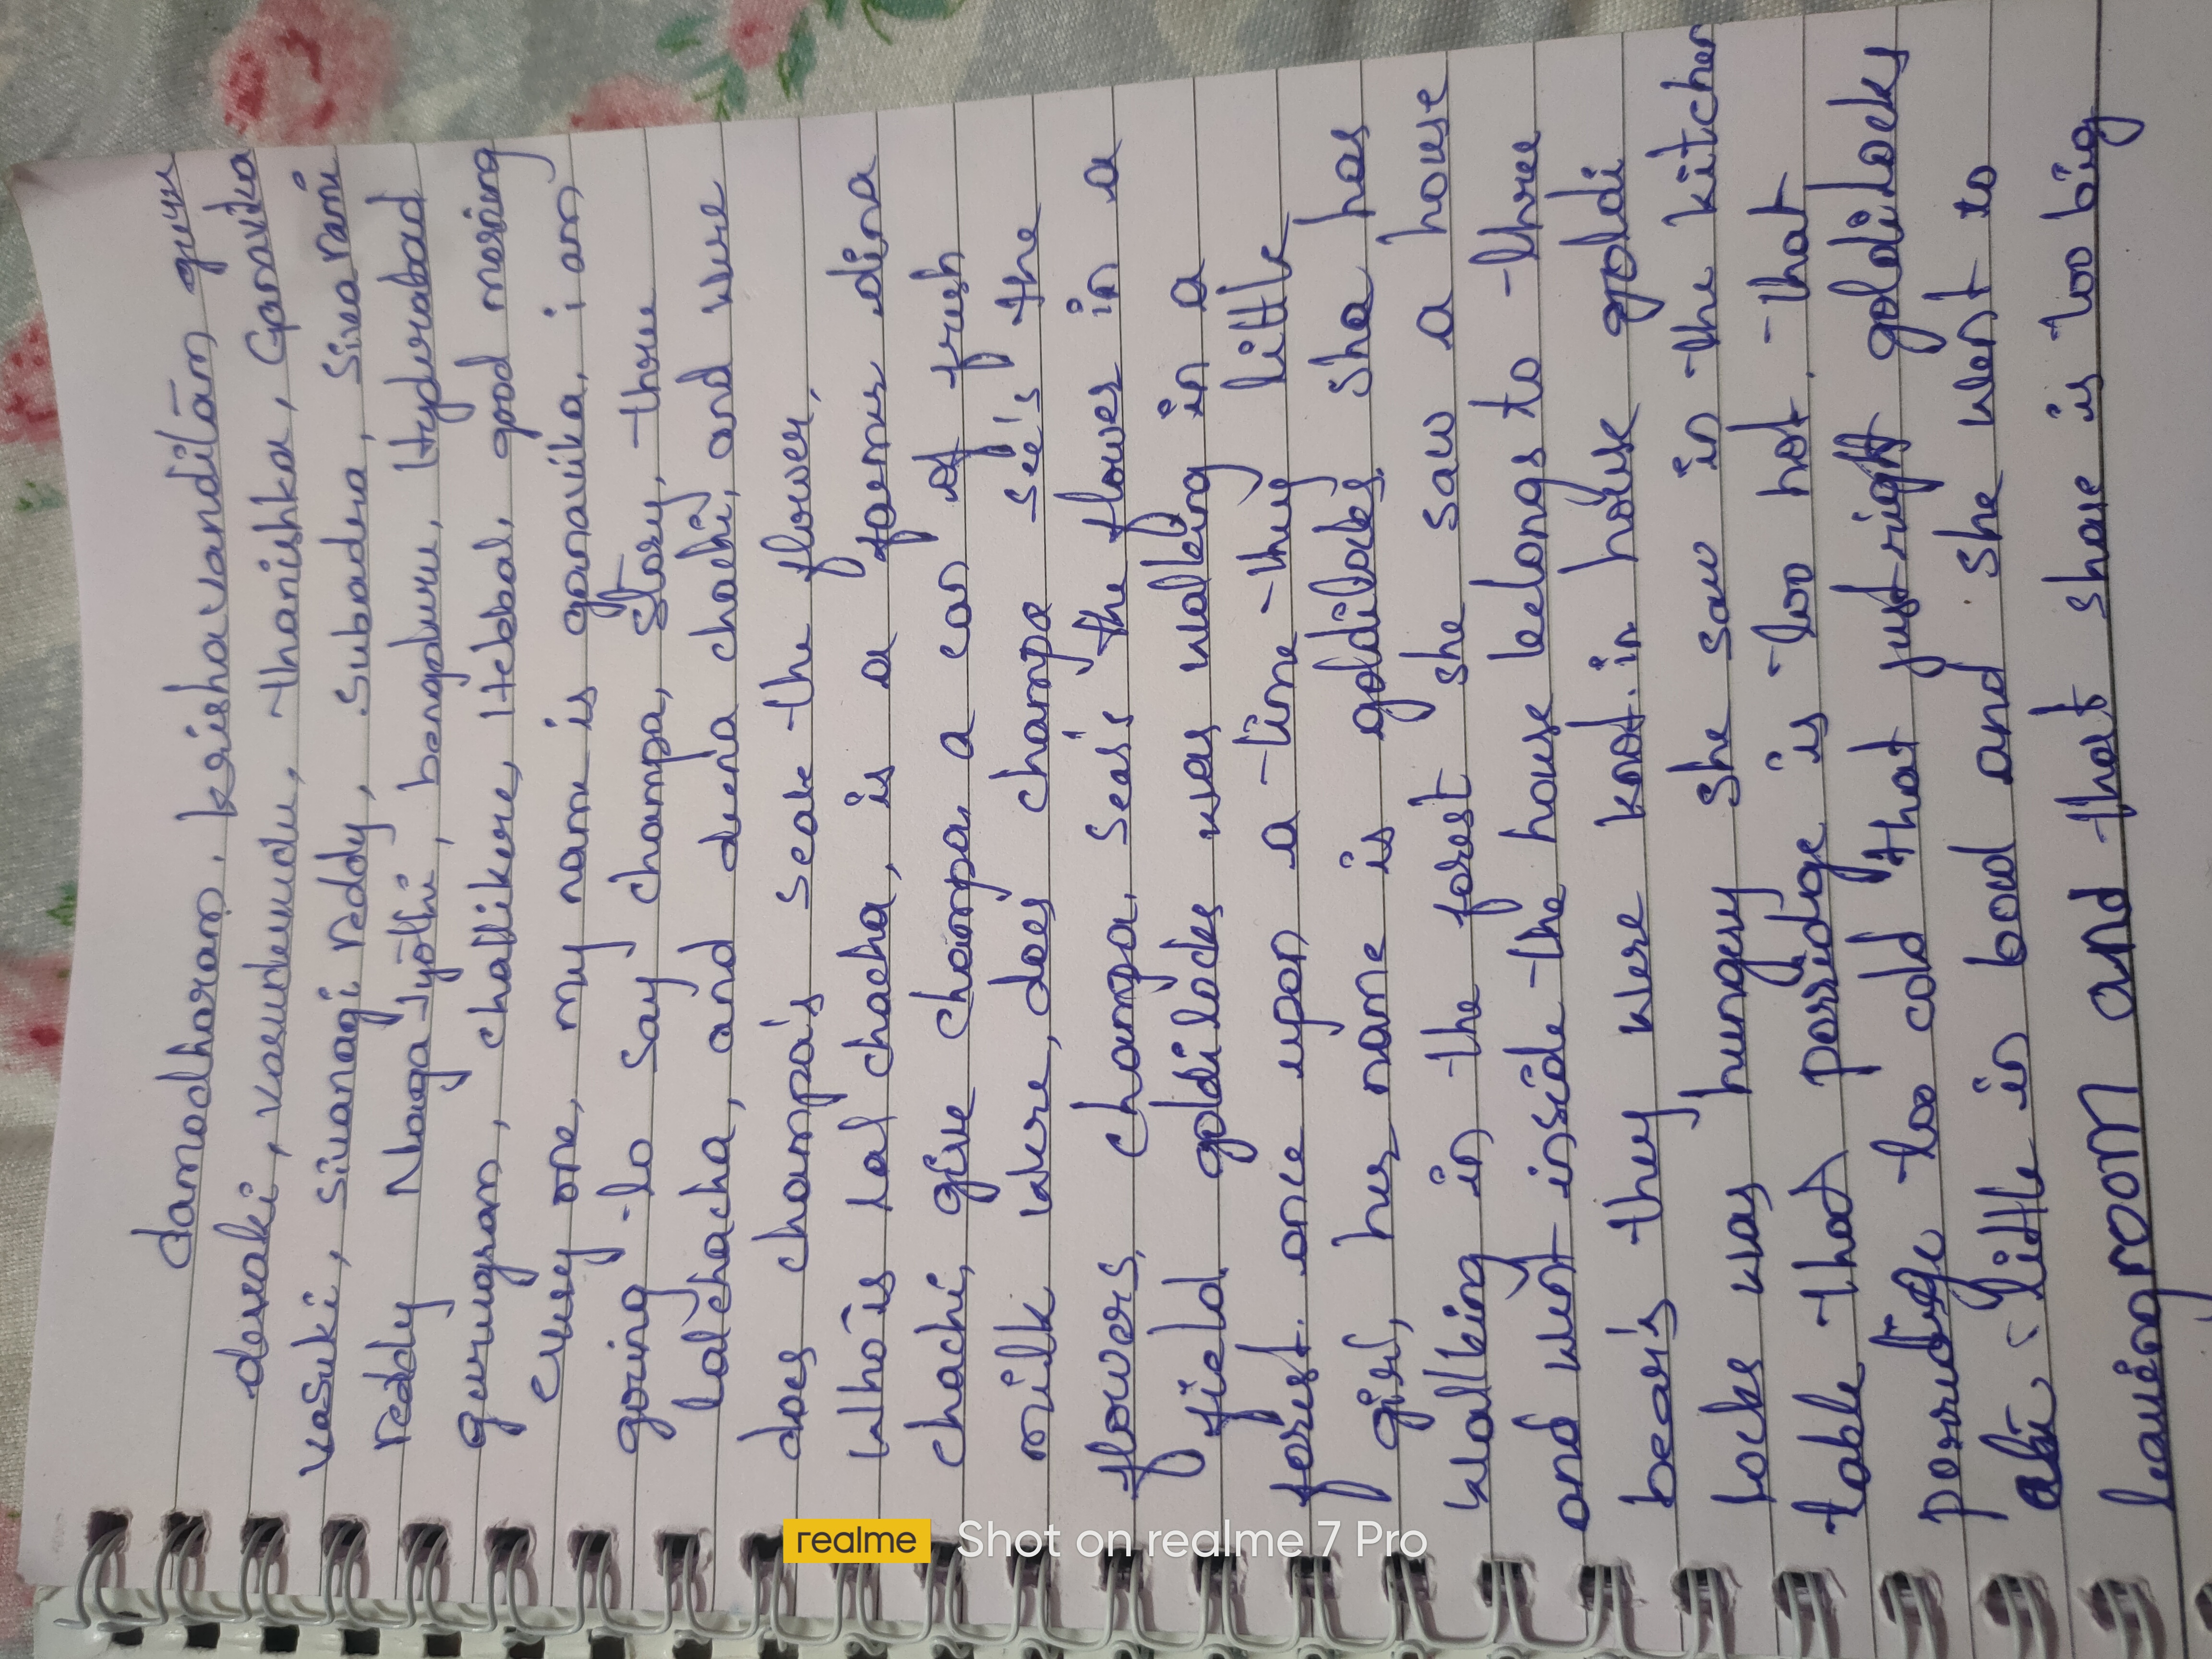 damodharam, krishavanditam guru
devaki, vasundevudu, thanishka, Ganavika
vasuki, sivanagi reddy, Subadra, Sivarami
reddy Naga Jyothi, bengaluru, Hyderabad
gurugram, challikere, Hebbal, good morning
every one, my name is ganavika, i am
going to say champa, story, three
lalchacha, and deena chachi, and were
does champa's seak the flower,
who is lal chacha, is a farmer dina
chachi, give champa a can of fresh
milk were, does champa see's the
flowers, champa, seas the flower in a
field goldilocks was walking in a
forest. once upon a time they little
girl, her name is goldilocks she has
walking in the forest she saw a house
and went inside the house belongs to three
bear's they were knot in house goldi
locks was hungry she saw in the kitchen
table that porridge is too hot. that
porridge too cold that just right goldilocks
ate little in bowl and she went to
leavingroom and that share is too big
realme Shot on realme 7 Pro